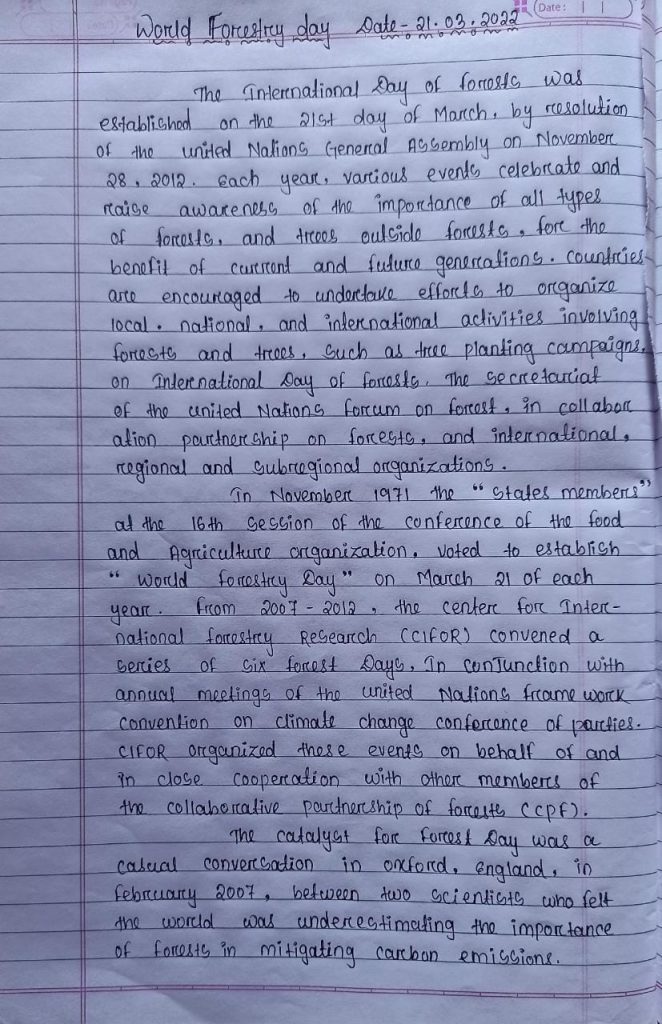 Date :
World Forestry day Date - 21.03.2022
The International Day of forests was
established on the 21st day of March, by resolution
of the united Nations General Assembly on November
28, 2012. Each year, various events celebrate and
raise awareness of the importance of all types
of forests, and trees outside forests, for the
benefit of current and future generations. countries
are encouraged to undertake efforts to organize
local, national, and international activities involving
forests and trees, such as tree planting campaigns.
on International Day of forests. The Secretariat
of the united Nations forum on forest, in collabor
ation partnership on forests, and international,
regional and subregional organizations.
In November 1971 the "States members"
at the 16th Session of the conference of the food
and Agriculture organization, voted to establish
" World forestry Day" on March 21 of each
year. From 2007 - 2012, the center for Inter-
national forestry Research (CIFOR) convened a
series of six forest Days, In conjunction with
annual meetings of the united Nations frame work
convention on climate change conference of parties.
CIFOR organized these events on behalf of and
in close cooperation with other members of
the collaborative partnership of forests (cpf).
The catalyst for forest Day was a
casual conversation in oxford, england, in
february 2007, between two scientists who felt
the world was underestimating the importance
of forests in mitigating carbon emissions.